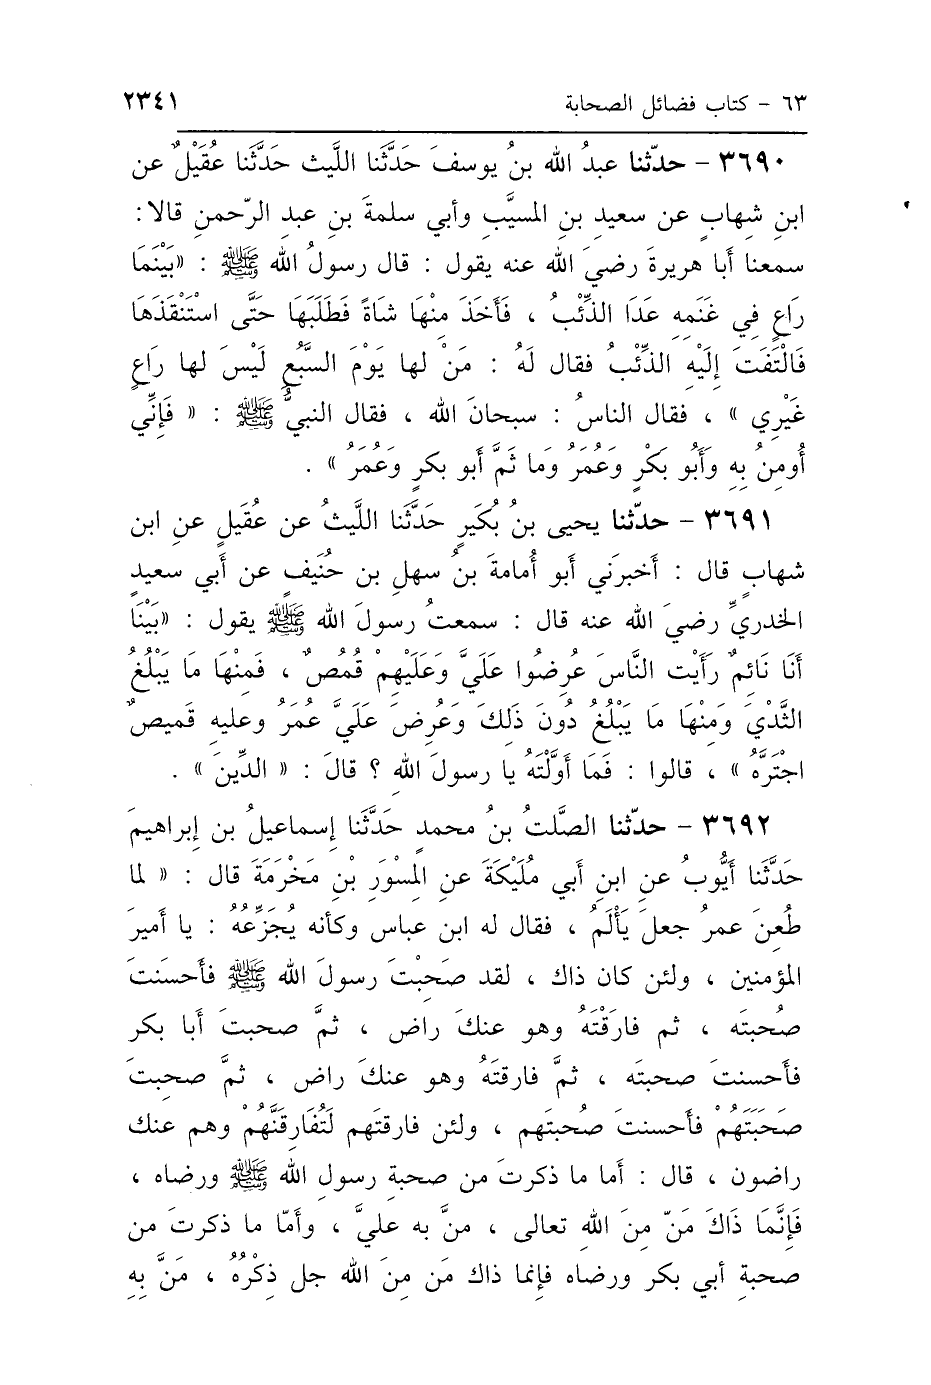 ٦٣ - كتاب فضائل الصحابة ٢٣٤١
٣٦٩٠ - حدّثنا عبدُ الله بنُ يوسفَ حَدَّثَنا اللَّيث حَدَّثَنا عُقَيْلٌ عن
ابنِ شهابٍ عن سعيدِ بنِ المسيَّبِ وأبي سلمةَ بنِ عبدِ الرّحمنِ قالا :
سمعنا أبا هريرةَ رضيَ الله عنه يقول : قال رسولُ الله ﷺ : «بَيْنَمَا
رَاعٍ فِي غَنَمِهِ عَدَا الذِّئْبُ ، فَأَخَذَ مِنْهَا شَاةً فَطَلَبَهَا حَتَّى اسْتَنْقَذَهَا
فَالْتَفَتَ إِلَيْهِ الذِّئْبُ فقال لَهُ : مَنْ لها يَوْمَ السَّبُعِ لَيْسَ لها رَاعٍ
غَيْرِي » ، فقال الناسُ : سبحانَ الله ، فقال النبيُّ ﷺ : « فَإِنِّي
أُومِنُ بِهِ وَأَبُو بَكْرٍ وَعُمَرُ وَما ثَمَّ أَبو بكرٍ وَعُمَرُ » .
٣٦٩١ - حدّثنا يحيى بنُ بُكَيرٍ حَدَّثَنا اللَّيثُ عن عُقَيلٍ عنِ ابن
شهابٍ قال : أَخبرَني أبو أُمامةَ بنُ سهلِ بن حُنَيفٍ عن أَبي سعيدٍ
الخدريِّ رضيَ الله عنه قال : سمعتُ رسولَ الله ﷺ يقول : «بَيْنَا
أَنَا نَائِمٌ رَأَيْت النَّاسَ عُرِضُوا عَلَيَّ وَعَلَيْهِمْ قُمُصٌ ، فَمِنْهَا مَا يَبْلُغُ
الثَّدْيَ وَمِنْهَا مَا يَبْلُغُ دُونَ ذَلِكَ وَعُرِضَ عَلَيَّ عُمَرُ وعليه قَميصٌ
اجْتَرَّهُ » ، قالوا : فَمَا أَوَّلْتَهُ يا رسولَ اللهِ ؟ قالَ : « الدِّينَ » .
٣٦٩٢ - حدّثنا الصَّلتُ بنُ محمدٍ حَدَّثَنا إسماعيلُ بن إبراهيمَ
حَدَّثَنا أَيُّوبُ عن ابنِ أبي مُلَيْكَةَ عنِ المِسْوَرِ بْنِ مَخْرَمَةَ قال : « لما
طُعِنَ عمرُ جعلَ يَأْلَمُ ، فقال له ابن عباس وكأنه يُجَزِّعُهُ : يا أَميرَ
المؤمنين ، ولئن كان ذاك ، لقد صَحِبْتَ رسولَ الله ﷺ فأَحسَنتَ
صُحبتَه ، ثم فارَقْتَهُ وهو عنكَ راضٍ ، ثمَّ صحبتَ أَبا بكر
فأَحسنتَ صحبتَه ، ثمَّ فارقتَهُ وهو عنكَ راضٍ ، ثمَّ صحِبتَ
صَحَبَتَهُمْ فأَحسنتَ صُحبتَهم ، ولئن فارقتَهم لَتُفَارِقَنَّهُمْ وهم عنك
راضون ، قال : أَما ما ذكرتَ من صحبةِ رسولِ الله ﷺ ورضاه ،
فَإِنَّمَا ذَاكَ مَنّ مِنَ اللهِ تعالى ، منَّ به عليَّ ، وأَمّا ما ذكرتَ من
صحبةِ أبي بكر ورضاه فإِنما ذاك مَن مِنَ الله جل ذِكْرُهُ ، مَنَّ بِهِ